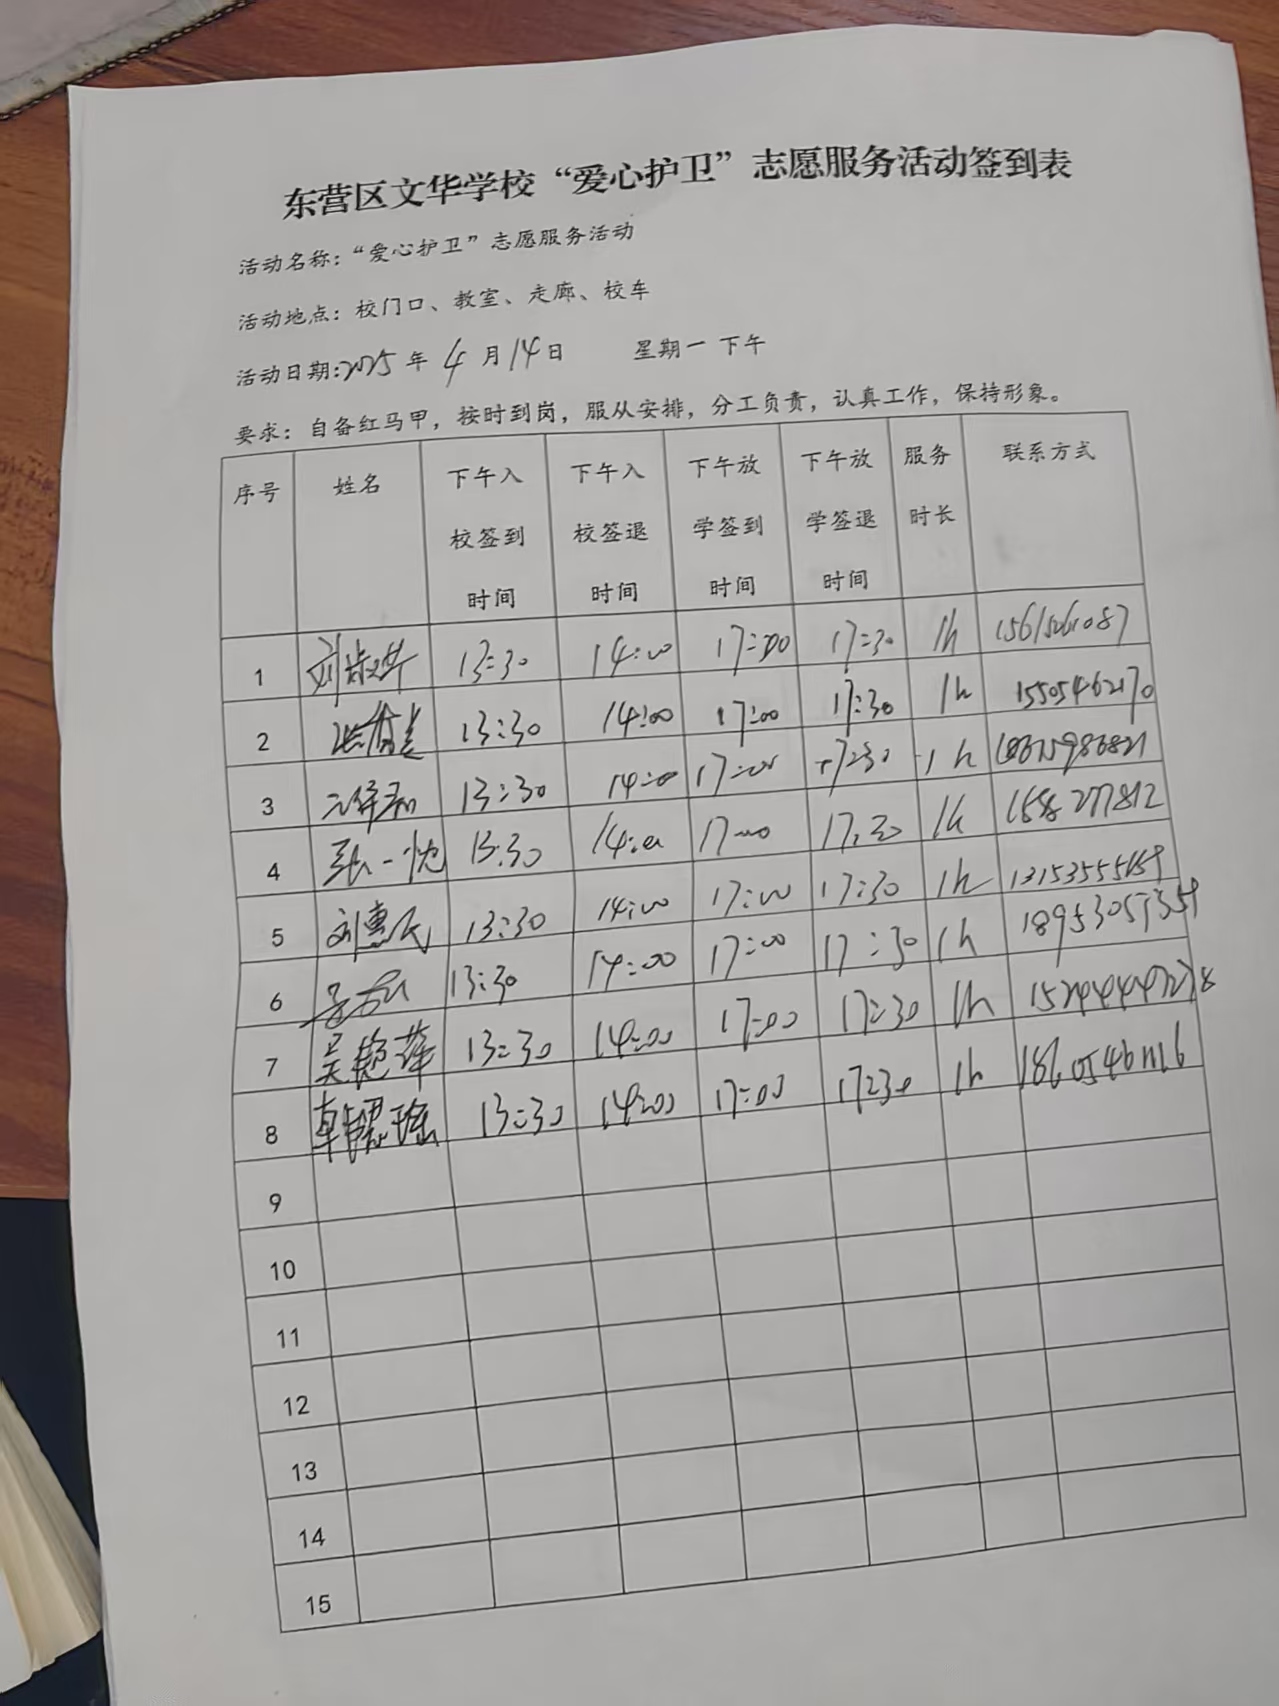 东营区文华学校“爱心护卫”志愿服务活动签到表
活动名称：“爱心护卫”志愿服务活动
活动地点：校门口、教室、走廊、校车
活动日期:2025年4月14日 星期一 下午
要求：自备红马甲，按时到岗，服从安排，分工负责，认真工作，保持形象。
序号 姓名 下午入校签到时间 下午入校签退时间 下午放学签到时间 下午放学签退时间 服务时长 联系方式
1 13:30 14:00 17:00 17:30 1h
2 13:30 14:00 17:00 17:30 1h 15505462170
3 13:30 14:00 17:00 17:30 1h
4 13:30 14:00 17:00 17:30 1h
5 刘惠民 13:30 14:00 17:00 17:30 1h
6 13:30 14:00 17:00 17:30 1h
7 吴艳萍 13:30 14:00 17:00 17:30 1h
8 13:30 14:00 17:00 17:30 1h
9
10
11
12
13
14
15